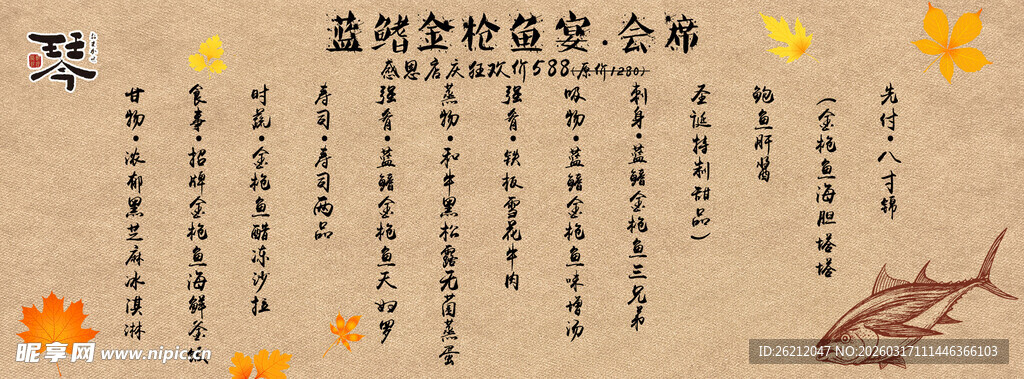 蓝鳍金枪鱼宴.会席
感恩店庆狂欢价588(原价1280)
琴
先付·八寸锦
(金枪鱼海胆塔塔
鲍鱼肝酱
圣诞特制甜品)
刺身·蓝鳍金枪鱼三兄弟
吸物·蓝鳍金枪鱼味增汤
强肴·铁板雪花牛肉
蒸物·和牛黑松露无菌蒸蛋
强肴·蓝鳍金枪鱼天妇罗
寿司·寿司两品
时蔬·金枪鱼醋冻沙拉
食事·招牌金枪鱼海鲜釜饭
甘物·浓郁黑芝麻冰淇淋
昵享网 www.nipic.cn
ID:26212047 NO:20260317111446366103